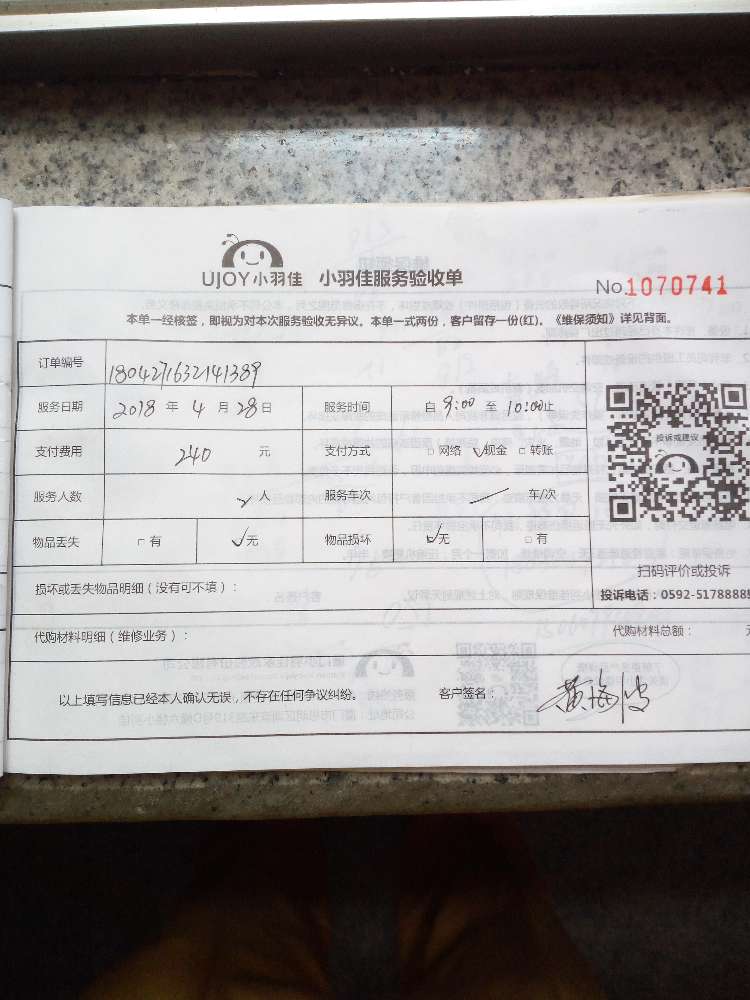 UJOY小羽佳 小羽佳服务验收单 No.1070741
本单一经核签，即视为对本次服务验收无异议。本单一式两份，客户留存一份(红)。《维保须知》详见背面。
订单编号 1804271632141389
服务日期 2018 年 4 月 28 日 服务时间 自 9:00 至 10:00止
支付费用 240 元 支付方式 □ 网络 ✓现金 □ 转账
投诉或建议
服务人数 2 人 服务车次 / 车/次
物品丢失 □ 有 ✓无 物品损坏 ✓无 □ 有
扫码评价或投诉
损坏或丢失物品明细（没有可不填）： 投诉电话：0592-5178888
代购材料明细（维修业务）： 代购材料总额：
以上填写信息已经本人确认无误，不存在任何争议纠纷。 客户签名： 黄海波